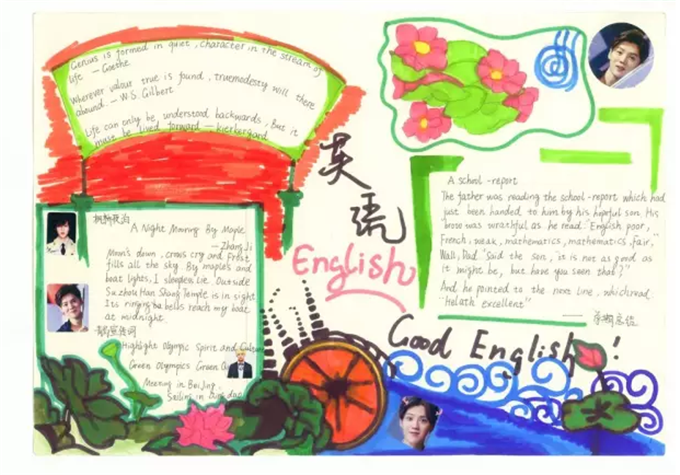 Genius is formed in quiet, character in the stream of
life — Goethe
Wherever valour true is found, truemodesty will there
abound. — W.S. Gilbert
Life can only be understood backwards; But it
must be lived forward — kierkergard
英
语
English
Good English!
枫桥夜泊
A Night Mooring By Maple
— Zhang Ji
Moon's down, crows cry and Frost
fills all the sky. By maples and
boat lights, I sleepless lie. Outside
Suzhou Han Shang Temple is in sight
Its ringing bells reach my boat
at midnight
Highlight Olympic Spirit and
Green Olympics Green
Meeting in BeiJing,
Sailing in
A school-report
The father was reading the school-report which had
just been handed to him by his hopeful son. His
brow was wrathful as he read: "English poor,
French, weak, mathematics, mathematics, fair."
Wall, Dad" Said the son, "it is not as good as
it might be, but have you seen that?"
And he pointed to the next line, which read:
"Helath excellent"